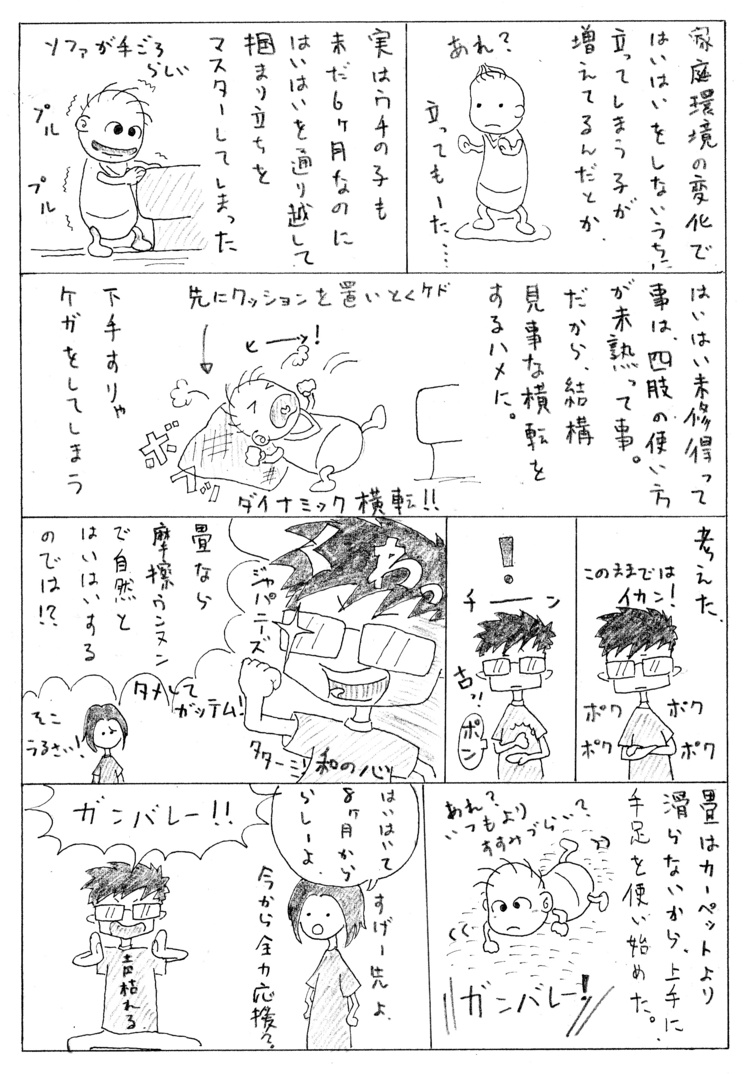 家庭環境の変化で
はいはいをしないうちに
立ってしまう子が
増えてるんだとか
あれ?
立ってもーた…
実はウチの子も
未だ6ヶ月なのに
はいはいを通り越して
掴まり立ちを
マスターしてしまった
ソファが手ごろ
らしい
プル
プル
はいはい未修得って
事は、四肢の使い方
が未熟って事。
だから、結構
見事な横転を
するハメに。
先にクッションを置いとくケド
ヒーッ!
ボ
ダイナミック横転!!
下手すりゃ
ケガをしてしまう
考えた
このままでは
イカン!
ポク
ポク
ポク
ポク
!
チーン
古っ!
ポン
ジャパニーズ
タターミッ!和の心ッ
畳なら
摩擦ウンヌン
で自然と
はいはいする
のでは!?
タメして
ガッテム!
そこ
うるさい!
畳はカーペットより
滑らないから、上手に
手足を使い始めた。
あれ?
いつもより
すすみづらい?
ガンバレー!
はいはいて
8ヶ月から
らしーよ
すげー先よ
今から全力応援?
ガンバレー!!
声枯れる